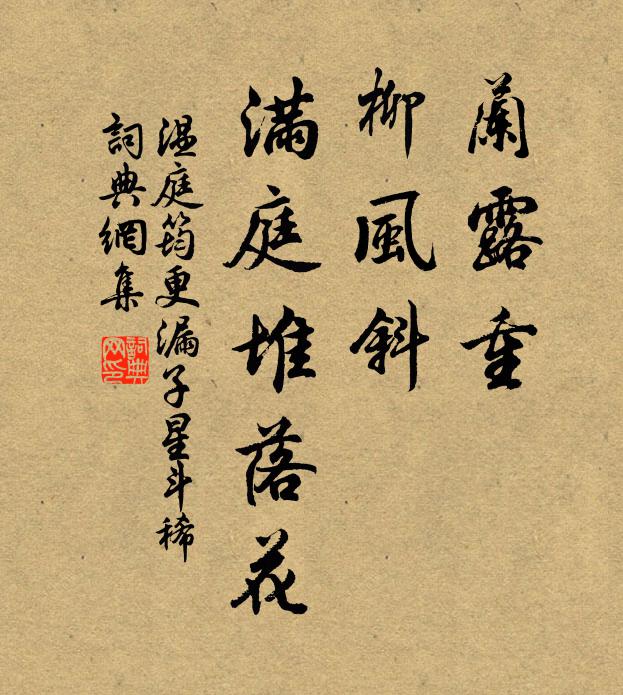 蘭露重
柳風斜
滿庭堆落花
溫庭筠更漏子星斗稀
詞典網集
詞典網印